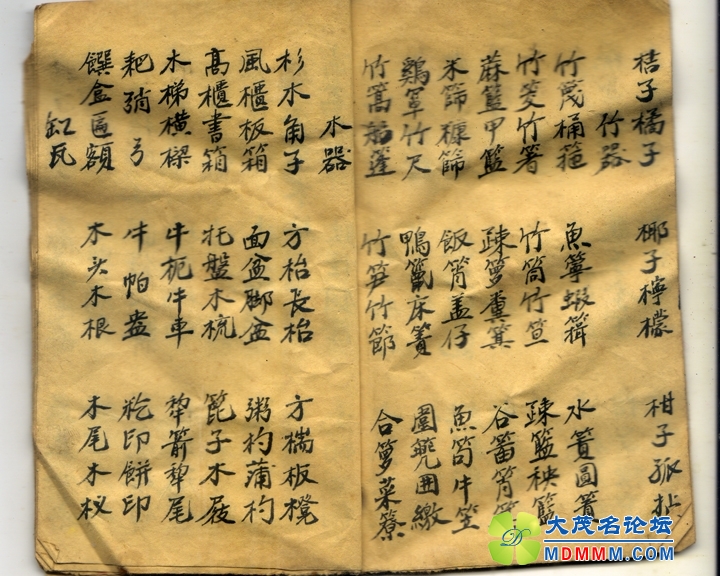 桔子橘子 椰子檸檬 柑子
竹器
竹篾桶箍 魚篝蝦篢 水簀圖箸
竹筊竹箸 竹筒竹笪 疎籃秧籃
蔴籃甲籃 疎箩糞箕 谷篅筲
米篩糠篩 飯筲盖仔 魚笱牛笠
鷄罩竹尺 鴨氹床簀 圍籠囲繳
竹篙船蓬 竹笋竹節 合箩菜簝
木器
杉木角子 方枱長枱 方櫈板櫈
風櫃板箱 面盆脚盆 粥杓蒲杓
高櫃書箱 托盤木梳 篦子木屐
木梯橫樑 牛軛牛車 犁箭犁尾
耙 弓 牛帕盎 籺印餅印
饌盒匾額 木头木根 木尾木杈
缸瓦
大茂名论坛
MDMMM.COM